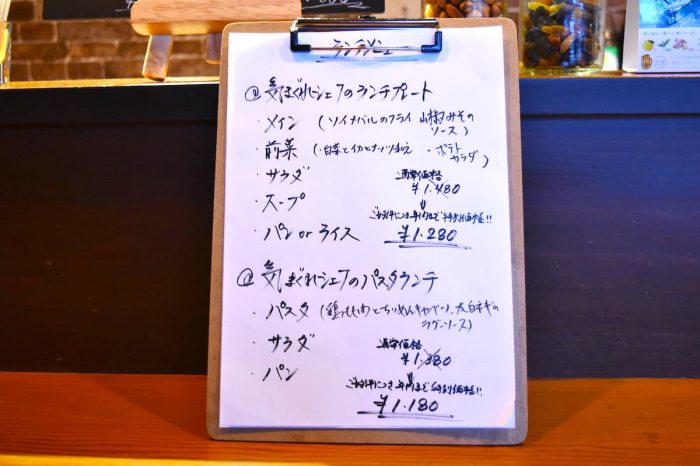 ランチメニュー
@気まぐれシェフのランチプレート
・メイン (ソイナバルのフライ 山椒みその
ソース)
・前菜 (・白菜とイカとナッツ和え ・ポテト
サラダ)
・サラダ
通常価格
¥1.480
・スープ
ご好評につき年内まで特別価格!!
・パン or ライス
¥1.280
@気まぐれシェフのパスタランチ
・パスタ (鶏もも肉とちりめんキャベツ、太白ネギの
ラグーソース)
・サラダ
通常価格
¥1.380
・パン
ご好評につき年内まで特別価格!!
¥1.180